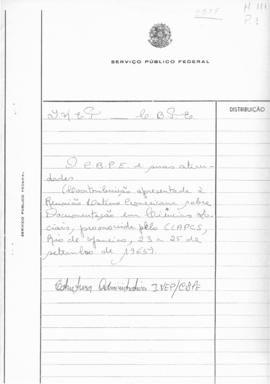 M 111
P. 1
SERVIÇO PÚBLICO FEDERAL
DISTRIBUIÇÃO
I N E P C B P E
O C.B.P.E. e suas ativi-
dades
(Contribuição apresentada à
Reunião Latino Americana sobre
Documentação em Ciências So-
ciais, promovida pelo CLAPCS,
Rio de Janeiro, 23 a 25 de
setembro de 1965)
Estrutura Administrativa INEP/CBPE
SERVIÇO PÚBLICO FEDERAL